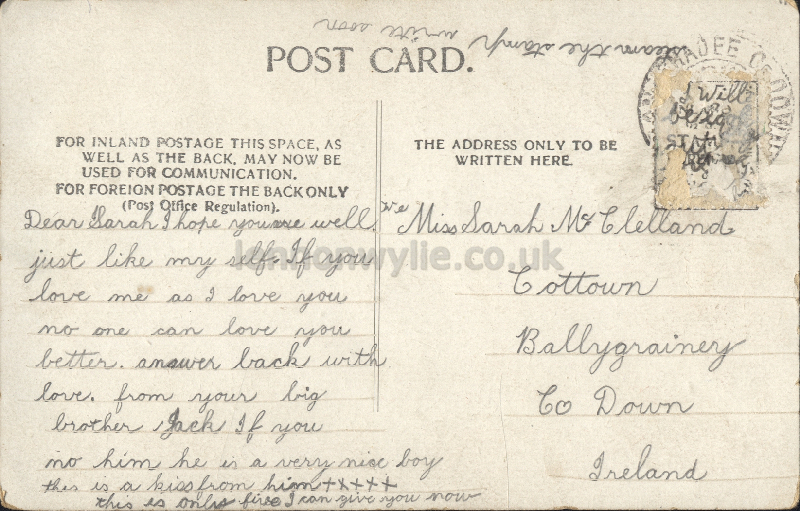 write soon
learn the stamp
POST CARD.
FOR INLAND POSTAGE THIS SPACE, AS
WELL AS THE BACK, MAY NOW BE
USED FOR COMMUNICATION.
FOR FOREIGN POSTAGE THE BACK ONLY
(Post Office Regulation).
Dear Sarah I hope you are well
just like my self. If you
love me as I love you
no one can love you
better. answer back with
love. from your big
brother Jack If you
no him he is a very nice boy
this is a kiss from him +++++
this is only five I can give you now
THE ADDRESS ONLY TO BE
WRITTEN HERE.
I Will
Miss Sarah Mc Clelland
Cottown
Ballygrainey
Co Down
Ireland
CO DOWN
lennonwylie.co.uk